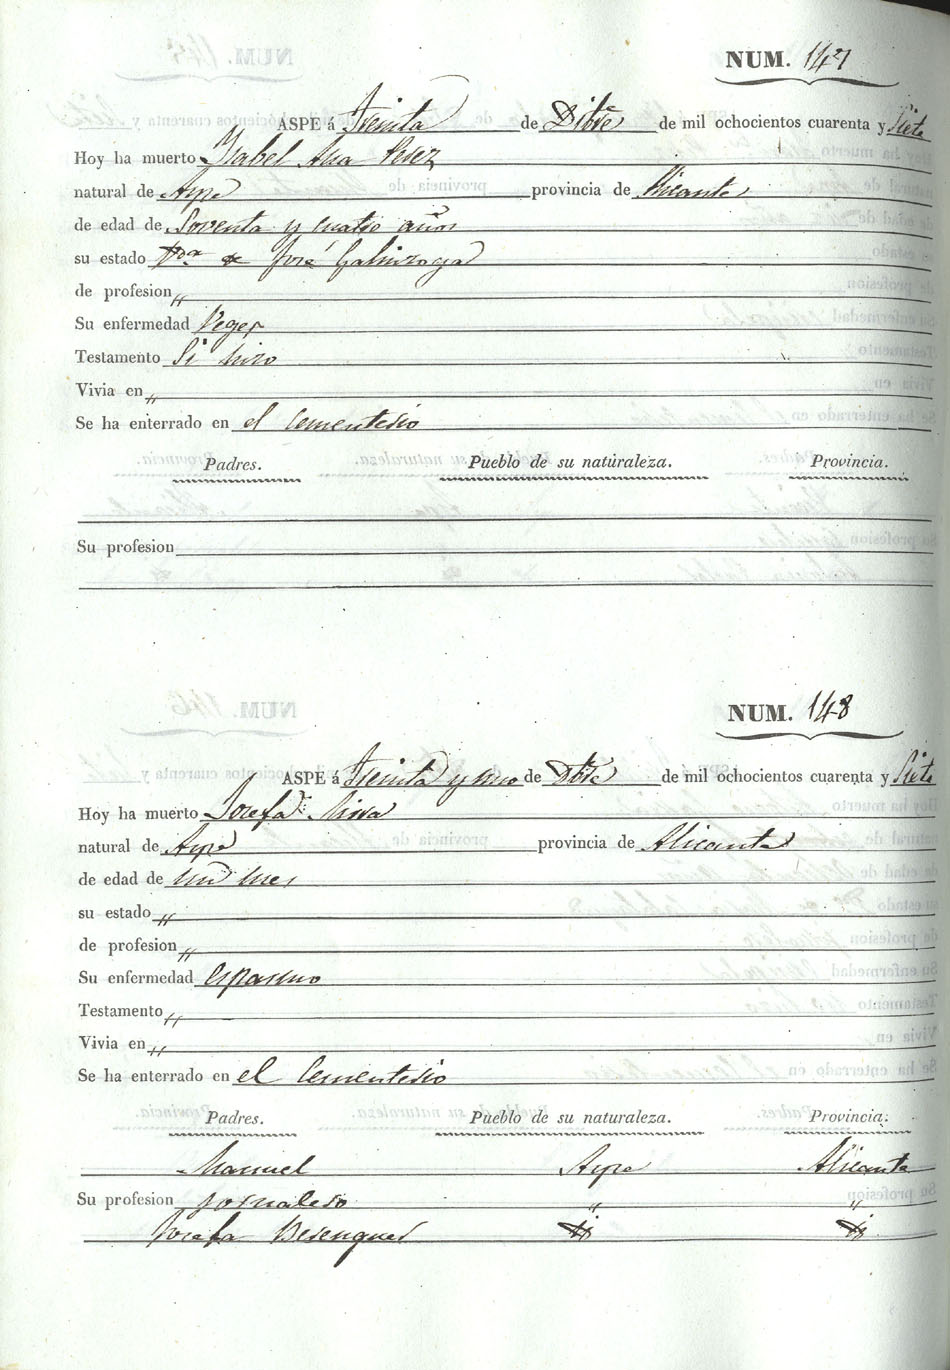 NUM. 147
ASPE á Treinta de Dibre de mil ochocientos cuarenta y Siete
Hoy ha muerto Ysabel Ana Perez
natural de Aspe provincia de Alicante
de edad de Soventa y cuatro años
su estado Vda de José Galinzoga
de profesion „
Su enfermedad Veges
Testamento Si hizo
Vivia en „
Se ha enterrado en el Cementerio
Padres. Pueblo de su naturaleza. Provincia.
Su profesion
NUM. 148
ASPE á Treinta y uno de Dbre de mil ochocientos cuarenta y Siete
Hoy ha muerto Josefa
natural de Aspe provincia de Alicante
de edad de un mes
su estado „
de profesion „
Su enfermedad espasmo
Testamento „
Vivia en „
Se ha enterrado en el Cementerio
Padres. Pueblo de su naturaleza. Provincia.
Manuel Aspe Alicante
Su profesion jornalero „ „
Josefa Berenguer